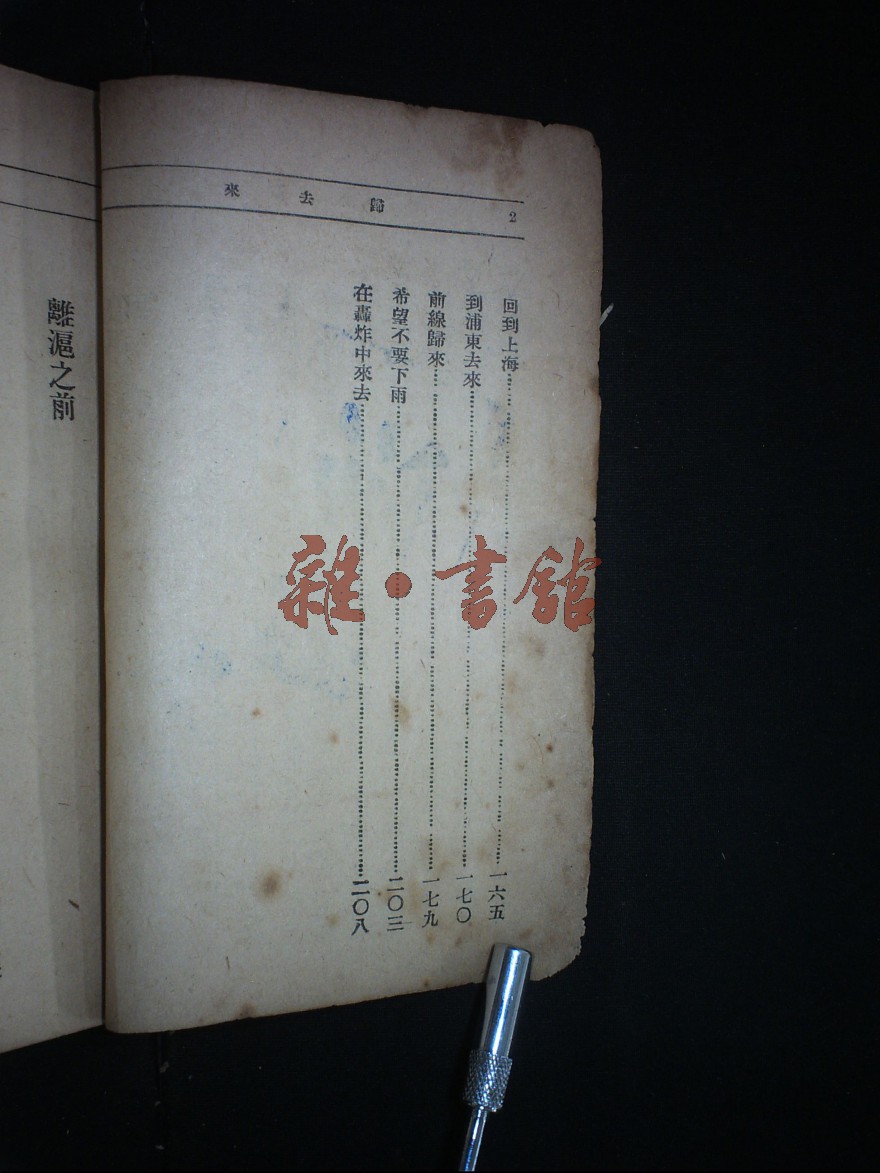 2 歸去來
回到上海……一六五
到浦東去來……一七〇
前線歸來……一七九
希望不要下雨……二〇三
在轟炸中來去……二〇八
離滬之前
雜·書館